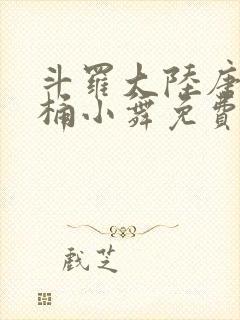 斗羅大陸唐
桶小舞免費
戲芝